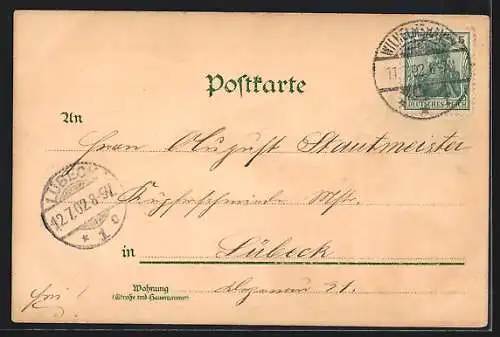 WILHELMSHAVEN
11. 7. 02. 6-7N
DEUTSCHES REICH
Postkarte
An
Herrn August Stautmeister
LÜBECK
12.7.02.8-9V.
* 1 c
Kupferschmiede Mstr.
in Lübeck
Wohnung
(Straße und Hausnummer)
21.